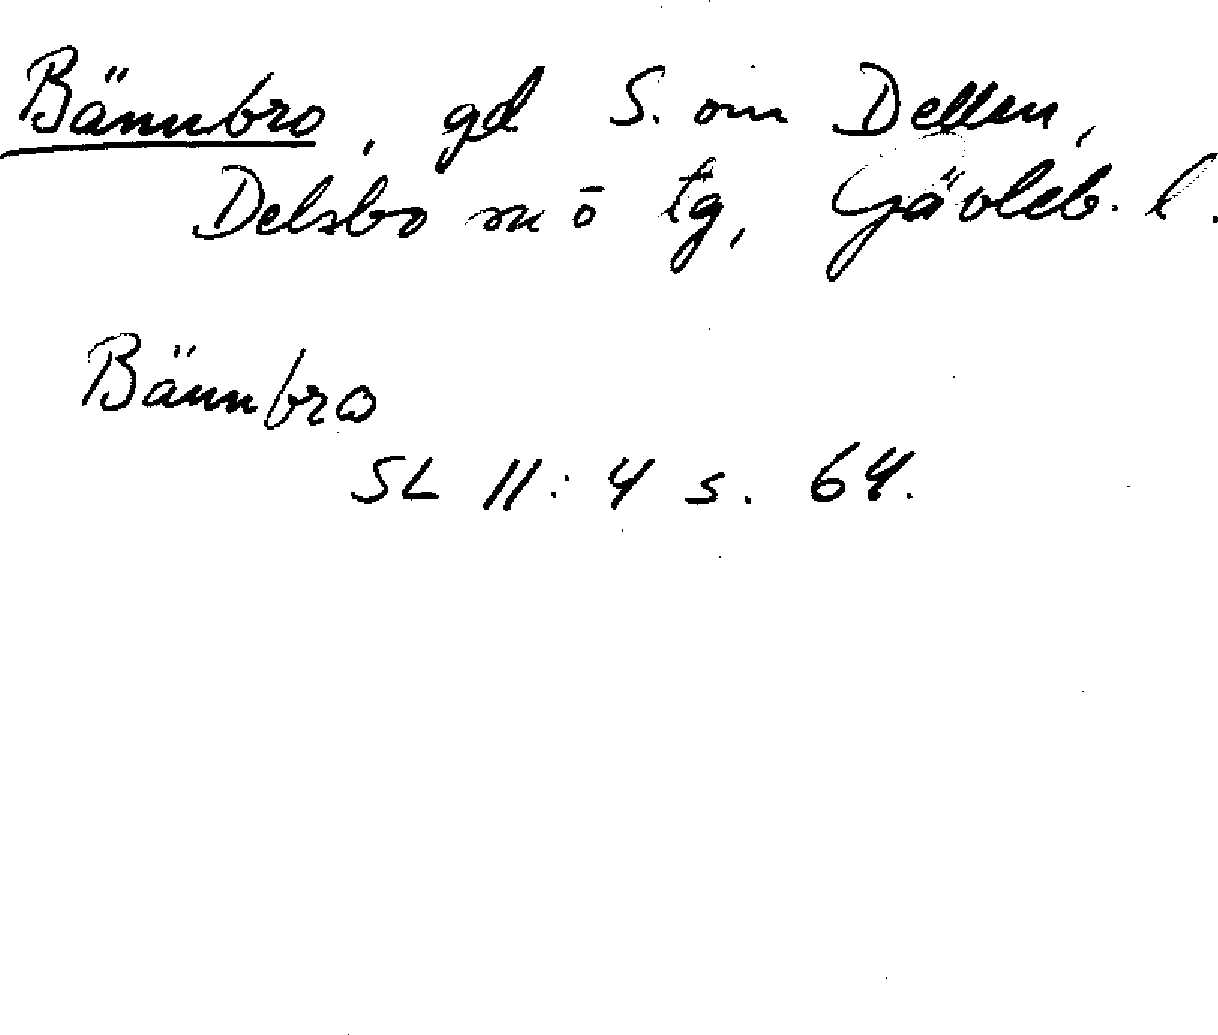 Bännbro, gd S. om Dellen,
Delsbo sn o tg, Gävleb. l.
Bännbro
SL 11:4 s. 64.